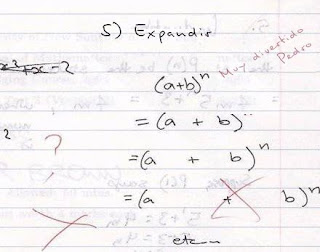 5) Expandir
(a+b)ⁿ
Muy divertido Pedro
= (a + b)ⁿ
?
= (a + b)ⁿ
= (a + b)ⁿ
etc...